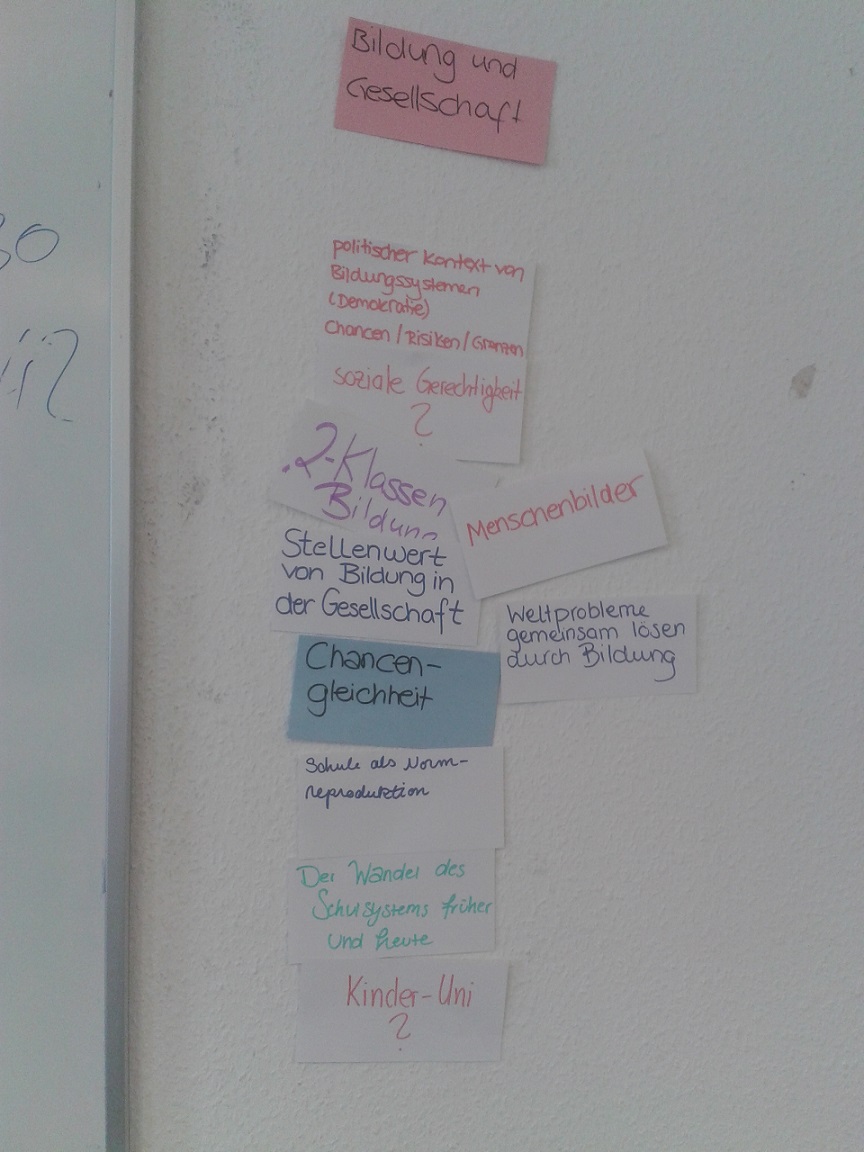 Bildung und
Gesellschaft
politischer Kontext von
Bildungssystemen
(Demokratie)
Chancen / Risiken / Grenzen
soziale Gerechtigkeit
?
2-Klassen
Bildung
Menschenbilder
Stellenwert
von Bildung in
der Gesellschaft
Weltprobleme
gemeinsam lösen
durch Bildung
Chancen-
gleichheit
Schule als Norm-
reproduktion
Der Wandel des
Schulsystems früher
und heute
Kinder-Uni
?